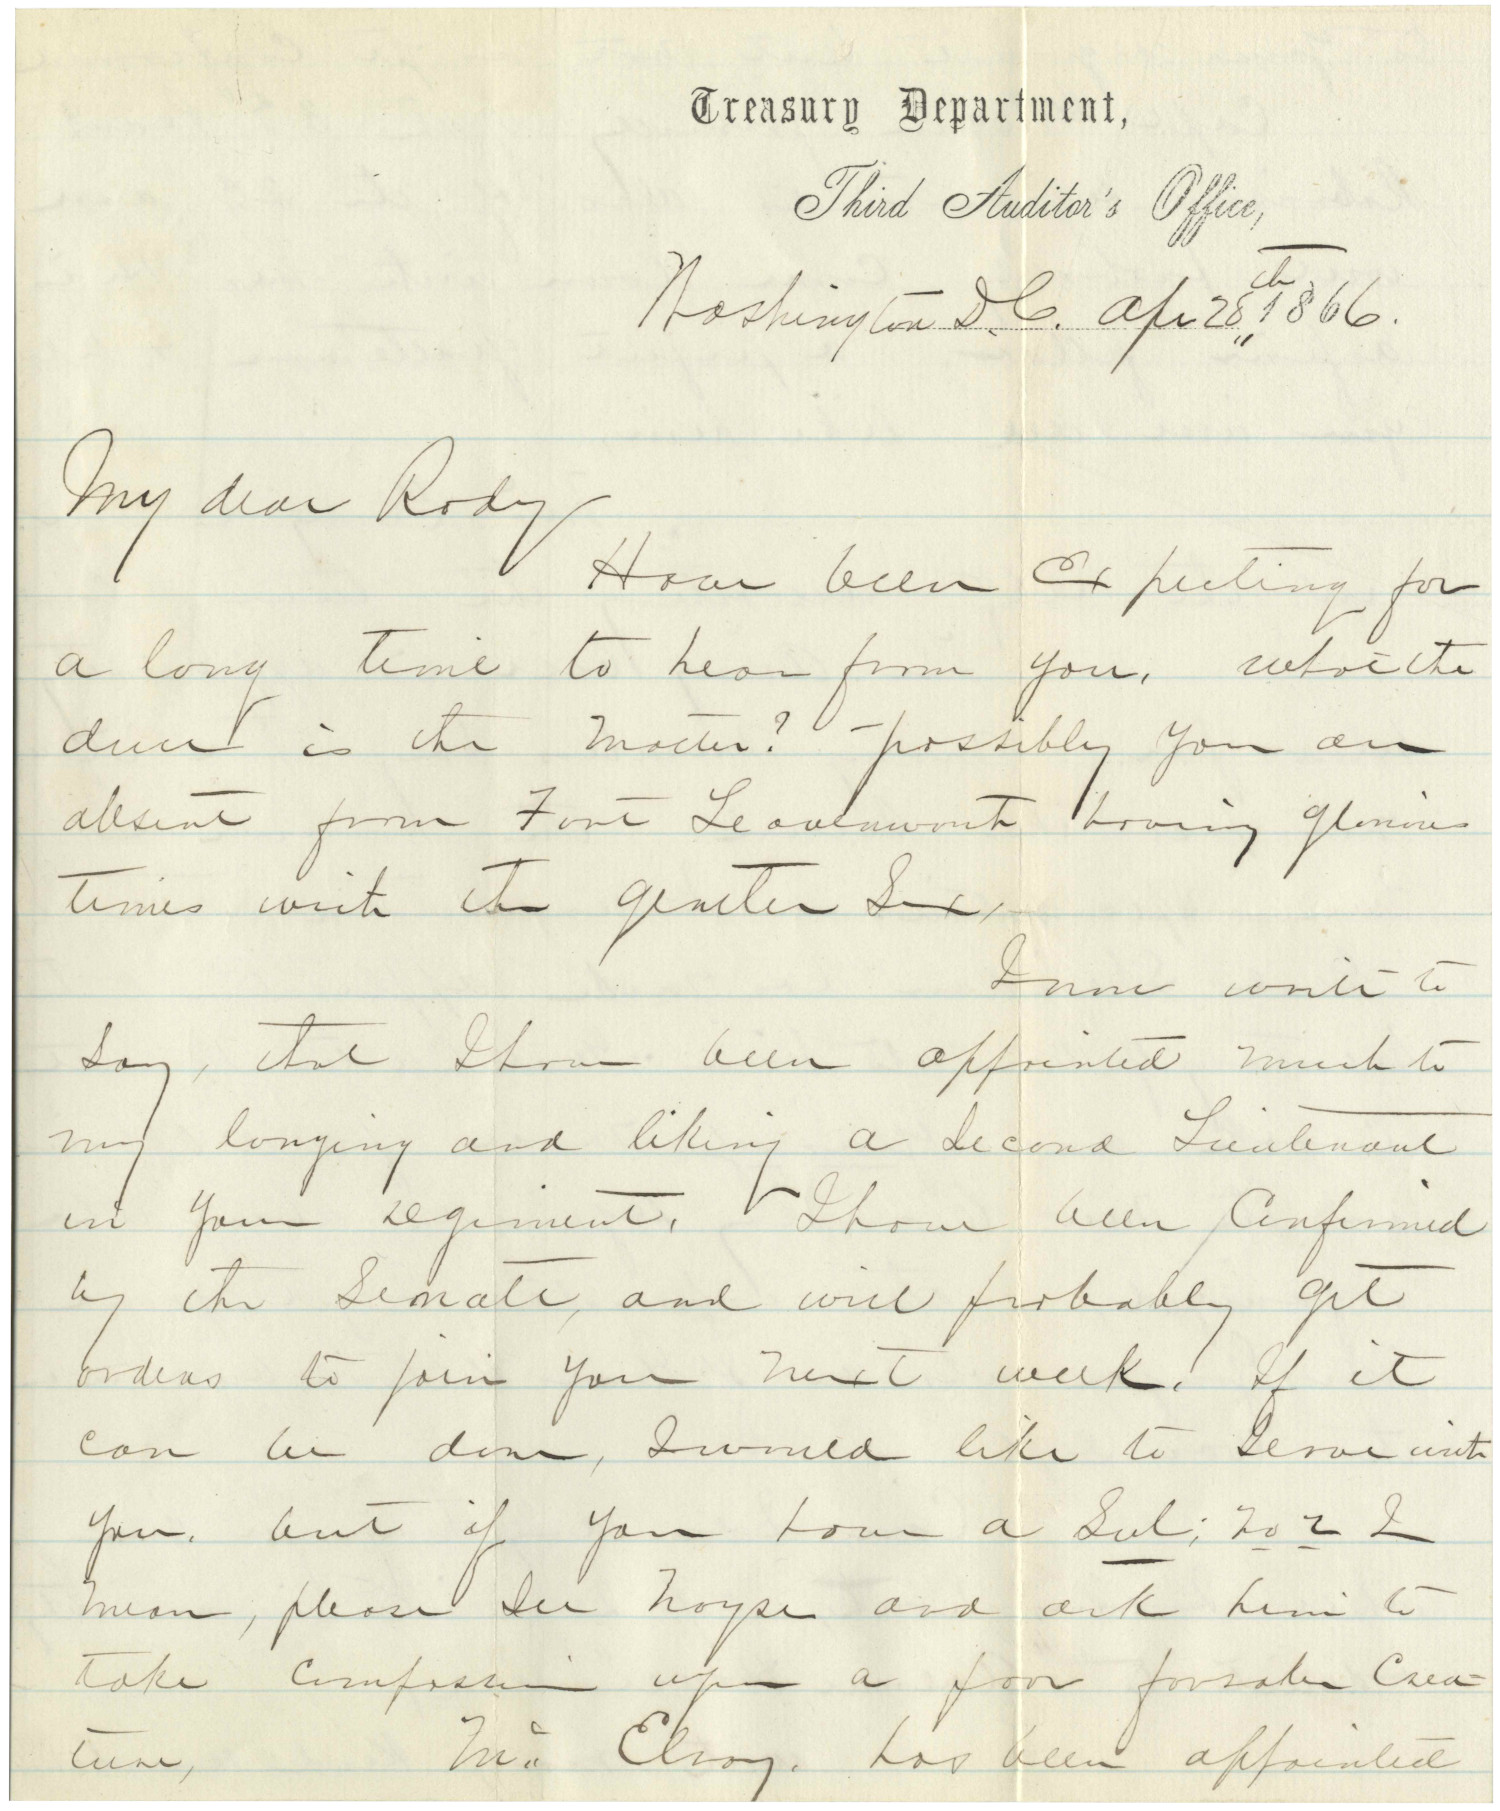 Treasury Department,
Third Auditor's Office,
Washington D.C. Apr 28th 1866.
My dear Rody
Have been Expecting for
a long time to hear from you, what the
duce is the matter? possibly you are
absent from Fort Leavenworth having glorious
times with the gentler Sex,
I now write to
say, that I have been appointed much to
my longing and liking a Second Lieutenant
in your regiment. I have been Confirmed
by the Senate, and will probably get
orders to join you next week. If it
can be done, I would like to serve with
you. but if you have a Sub; No 2 I
mean, please see Noyse and ask him to
take compassion upon a poor forsaken Crea-
ture, Mc Elroy. has been appointed